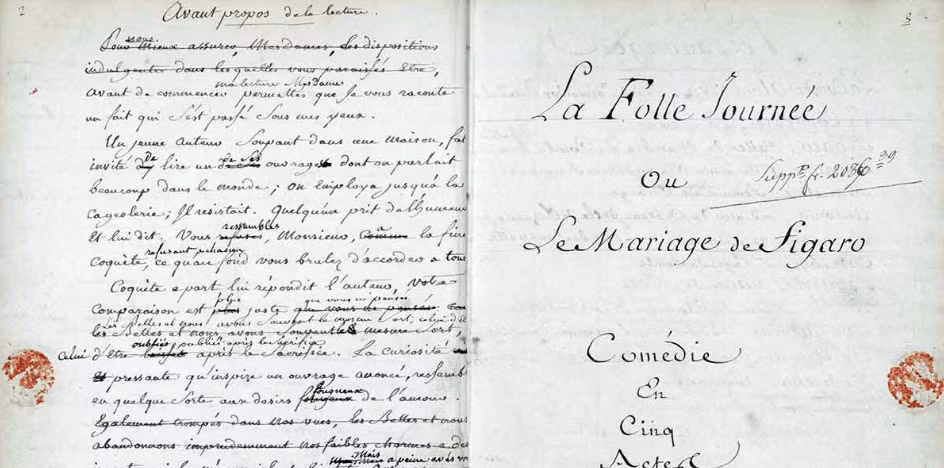 2
Avant propos de la lecture.
Pour Mieux assurer, Mesdames, les dispositions
indulgentes dans lesquelles vous paraissés être,
ma lecture Mesdames
avant de commencer permettes que Je vous raconte
un fait qui s'est passé sous mes yeux.
Un jeune auteur Soupant dans une maison, fut
invité de lire un de ses ouvrages dont on parlait
beaucoup dans le monde; on employa jusqu'à la
cageolerie; Il resistait. Quelqu'un prit de l'humeur
ressemblés
Et lui dit. Vous Monsieur, à la fine
refusant, chacun
Coquète, ce qu'au fond vous brulez d'accorder a tous
Coquète apart lui répondit l'auteur, Votre
plus que vous ne pensez
Comparaison est juste
Les Belles et nous avons Souvent le mesme Sort, celui d'
les Belles et nous avons Souvent le mesme Sort,
oubliés après le Sacrifice
Celui d'être après le Sacrifice. La curiosité
pressante qu'inspire un ouvrage anoncé, ressemb
fougueux
en quelque Sorte aux desirs de l'amour.
Egalement trompés dans nos vues, les Belles et nous
abandonnons imprudemment nos faibles charmes a des
Mais
a peine avés v
3
La Folle Journée
Ou
Supp.t fr. 2086
Le Mariage de Figaro
Comédie
En
Cinq
Actes